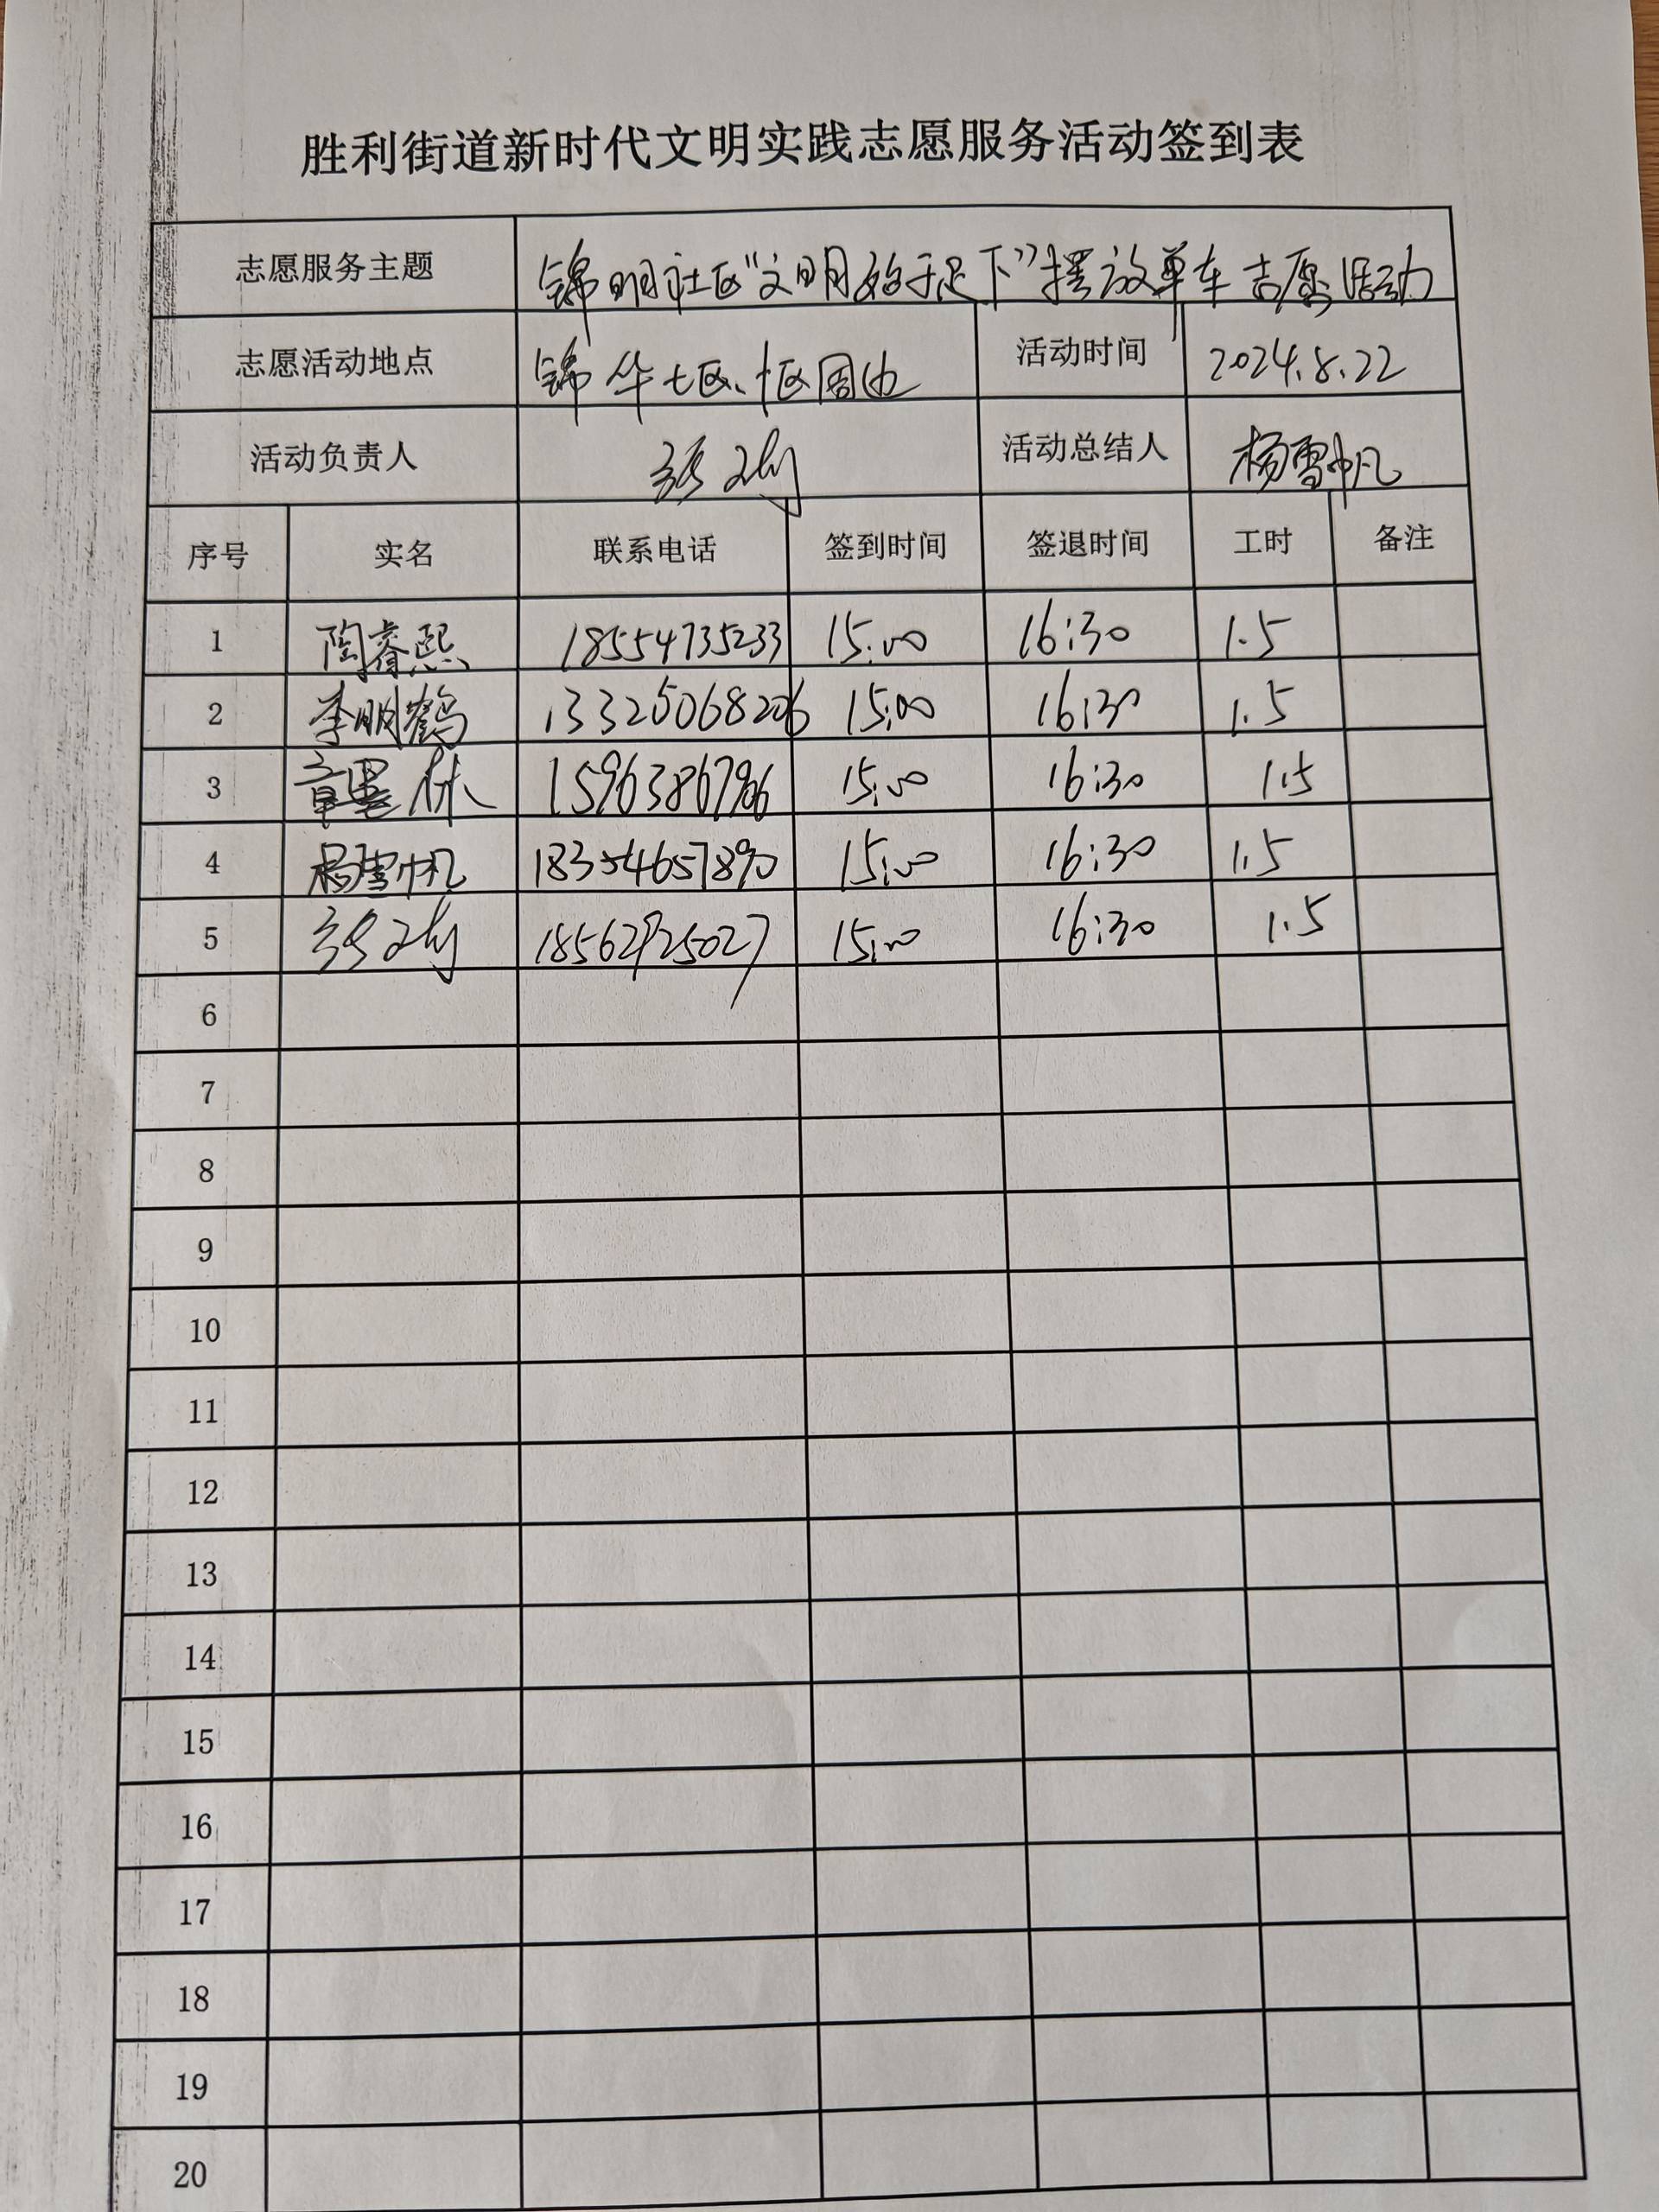 胜利街道新时代文明实践志愿服务活动签到表
志愿服务主题 锦明社区“文明始于足下”摆放单车志愿活动
志愿活动地点 锦华七区、十区周边 活动时间 2024.8.22
活动负责人 活动总结人 杨雪帆
序号 实名 联系电话 签到时间 签退时间 工时 备注
1 陶睿熙 18554735233 15:00 16:30 1.5
2 李明鹤 13325068206 15:00 16:30 1.5
3 章墨林 15963867966 15:00 16:30 1.5
4 杨雪帆 18354657890 15:00 16:30 1.5
5 18562925027 15:00 16:30 1.5
6
7
8
9
10
11
12
13
14
15
16
17
18
19
20